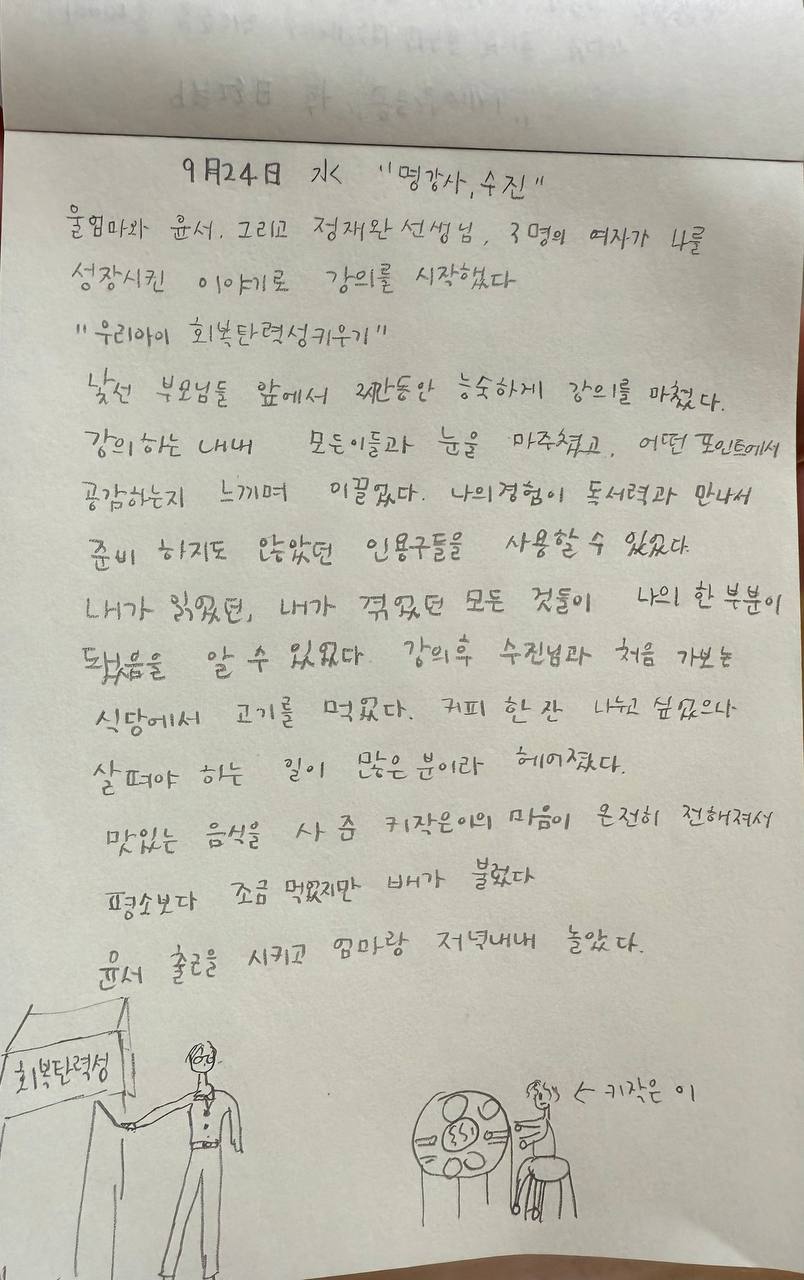 9月24日 水 "명강사, 수진"
울엄마와 윤서, 그리고 정재완 선생님, 3명의 여자가 나를
성장시킨 이야기로 강의를 시작했다
"우리아이 회복탄력성키우기"
낯선 부모님들 앞에서 2시간동안 능숙하게 강의를 마쳤다.
강의하는 내내 모든이들과 눈을 마주쳤고, 어떤 포인트에서
공감하는지 느끼며 이끌었다. 나의경험이 독서력과 만나서
준비 하지도 않았던 인용구들을 사용할 수 있었다.
내가 읽었던, 내가 겪었던 모든 것들이 나의 한 부분이
됐음을 알 수 있었다. 강의후 수진님과 처음 가보는
식당에서 고기를 먹었다. 커피 한 잔 나누고 싶었으나
살펴야 하는 일이 많은 분이라 헤어졌다.
맛있는 음식을 사 준 키작은이의 마음이 온전히 전해져서
평소보다 조금 먹었지만 배가 불렀다
윤서 출근을 시키고 엄마랑 저녁내내 놀았다.
회복탄력성
← 키작은 이